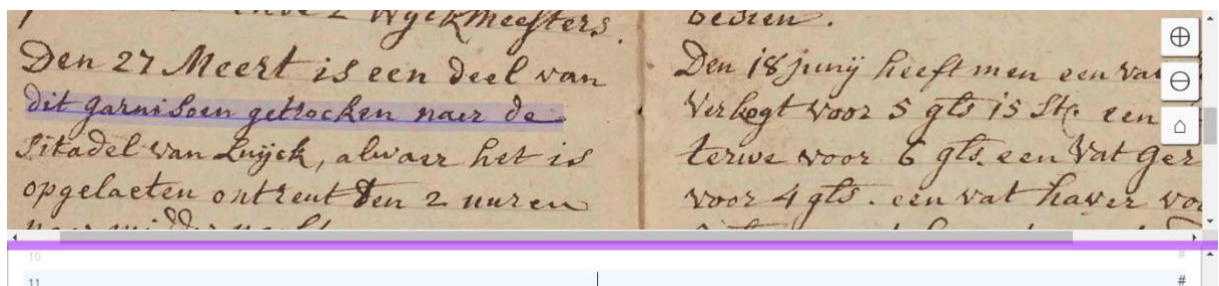 Wyckmeesters.
Den 27 Meert is een deel van
dit garnisoen getrocken naer de
Sitadel van Luyck, alwaer het is
opgelaeten ontrent den 2 uuren
bedien.
Den 18 junij heeft men een vat
verkogt voor 5 gls 15 St: een
terwe voor 6 gls. een vat ger
voor 4 gls. een vat haver vo
10 #
11 #